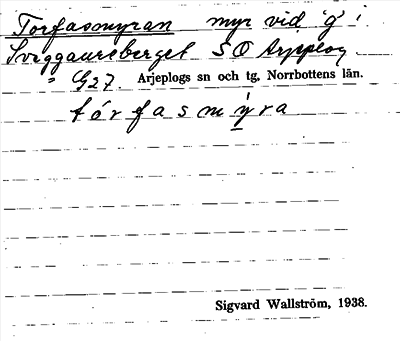 Torfasmyran myr vid 'g' i
Sveggaureberget SO Arjeplog
" G27. Arjeplogs sn och tg, Norrbottens län.
tórfasmýra
Sigvard Wallström, 1938.